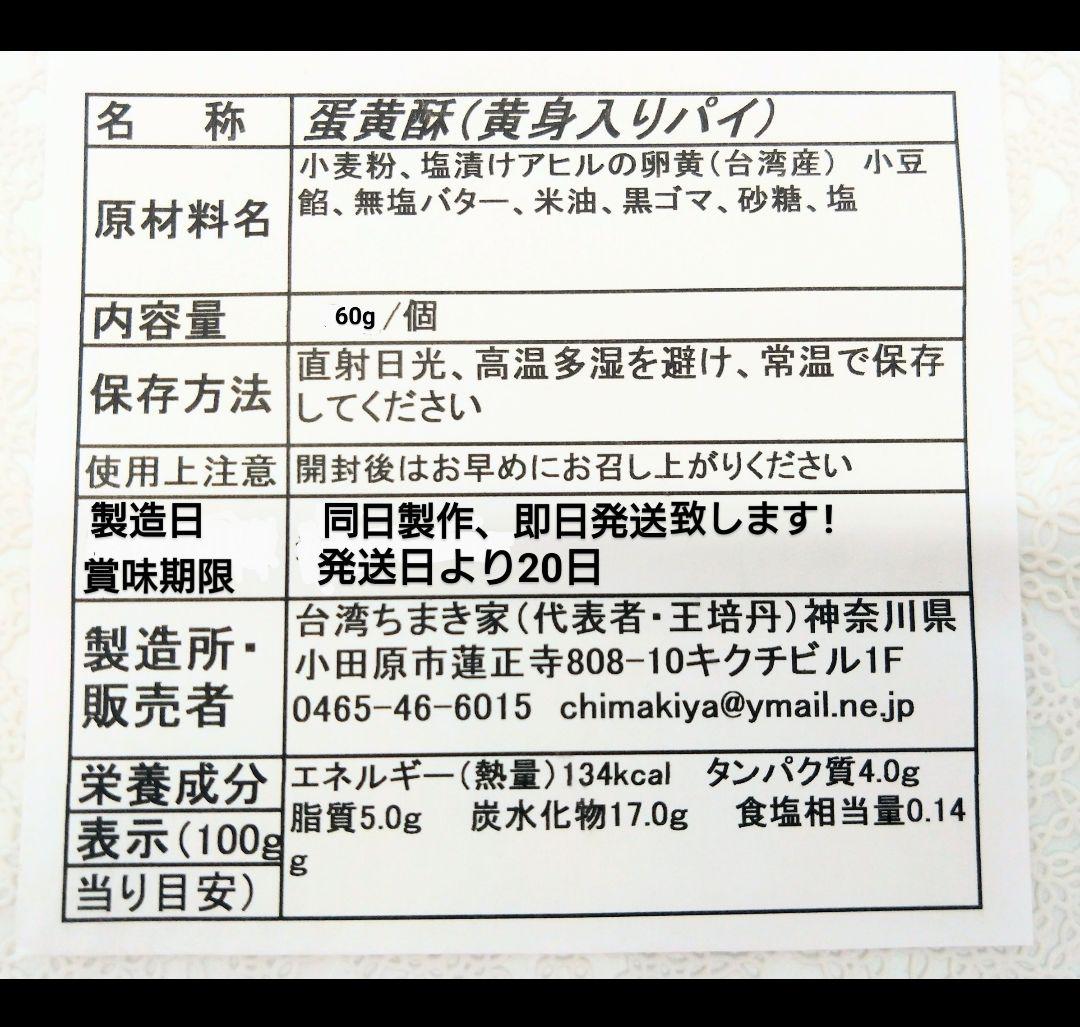 名 称 蛋黄酥(黄身入りパイ)
原材料名 小麦粉、塩漬けアヒルの卵黄(台湾産) 小豆
餡、無塩バター、米油、黒ゴマ、砂糖、塩
内容量 60g/個
保存方法 直射日光、高温多湿を避け、常温で保存
してください
使用上注意 開封後はお早めにお召し上がりください
製造日 同日製作、即日発送致します!
賞味期限 発送日より20日
製造所・
販売者
台湾ちまき家(代表者・王培丹)神奈川県
小田原市蓮正寺808-10キクチビル1F
0465-46-6015 chimakiya@ymail.ne.jp
栄養成分
表示(100g
当り目安)
エネルギー(熱量)134kcal タンパク質4.0g
脂質5.0g 炭水化物17.0g 食塩相当量0.14
g